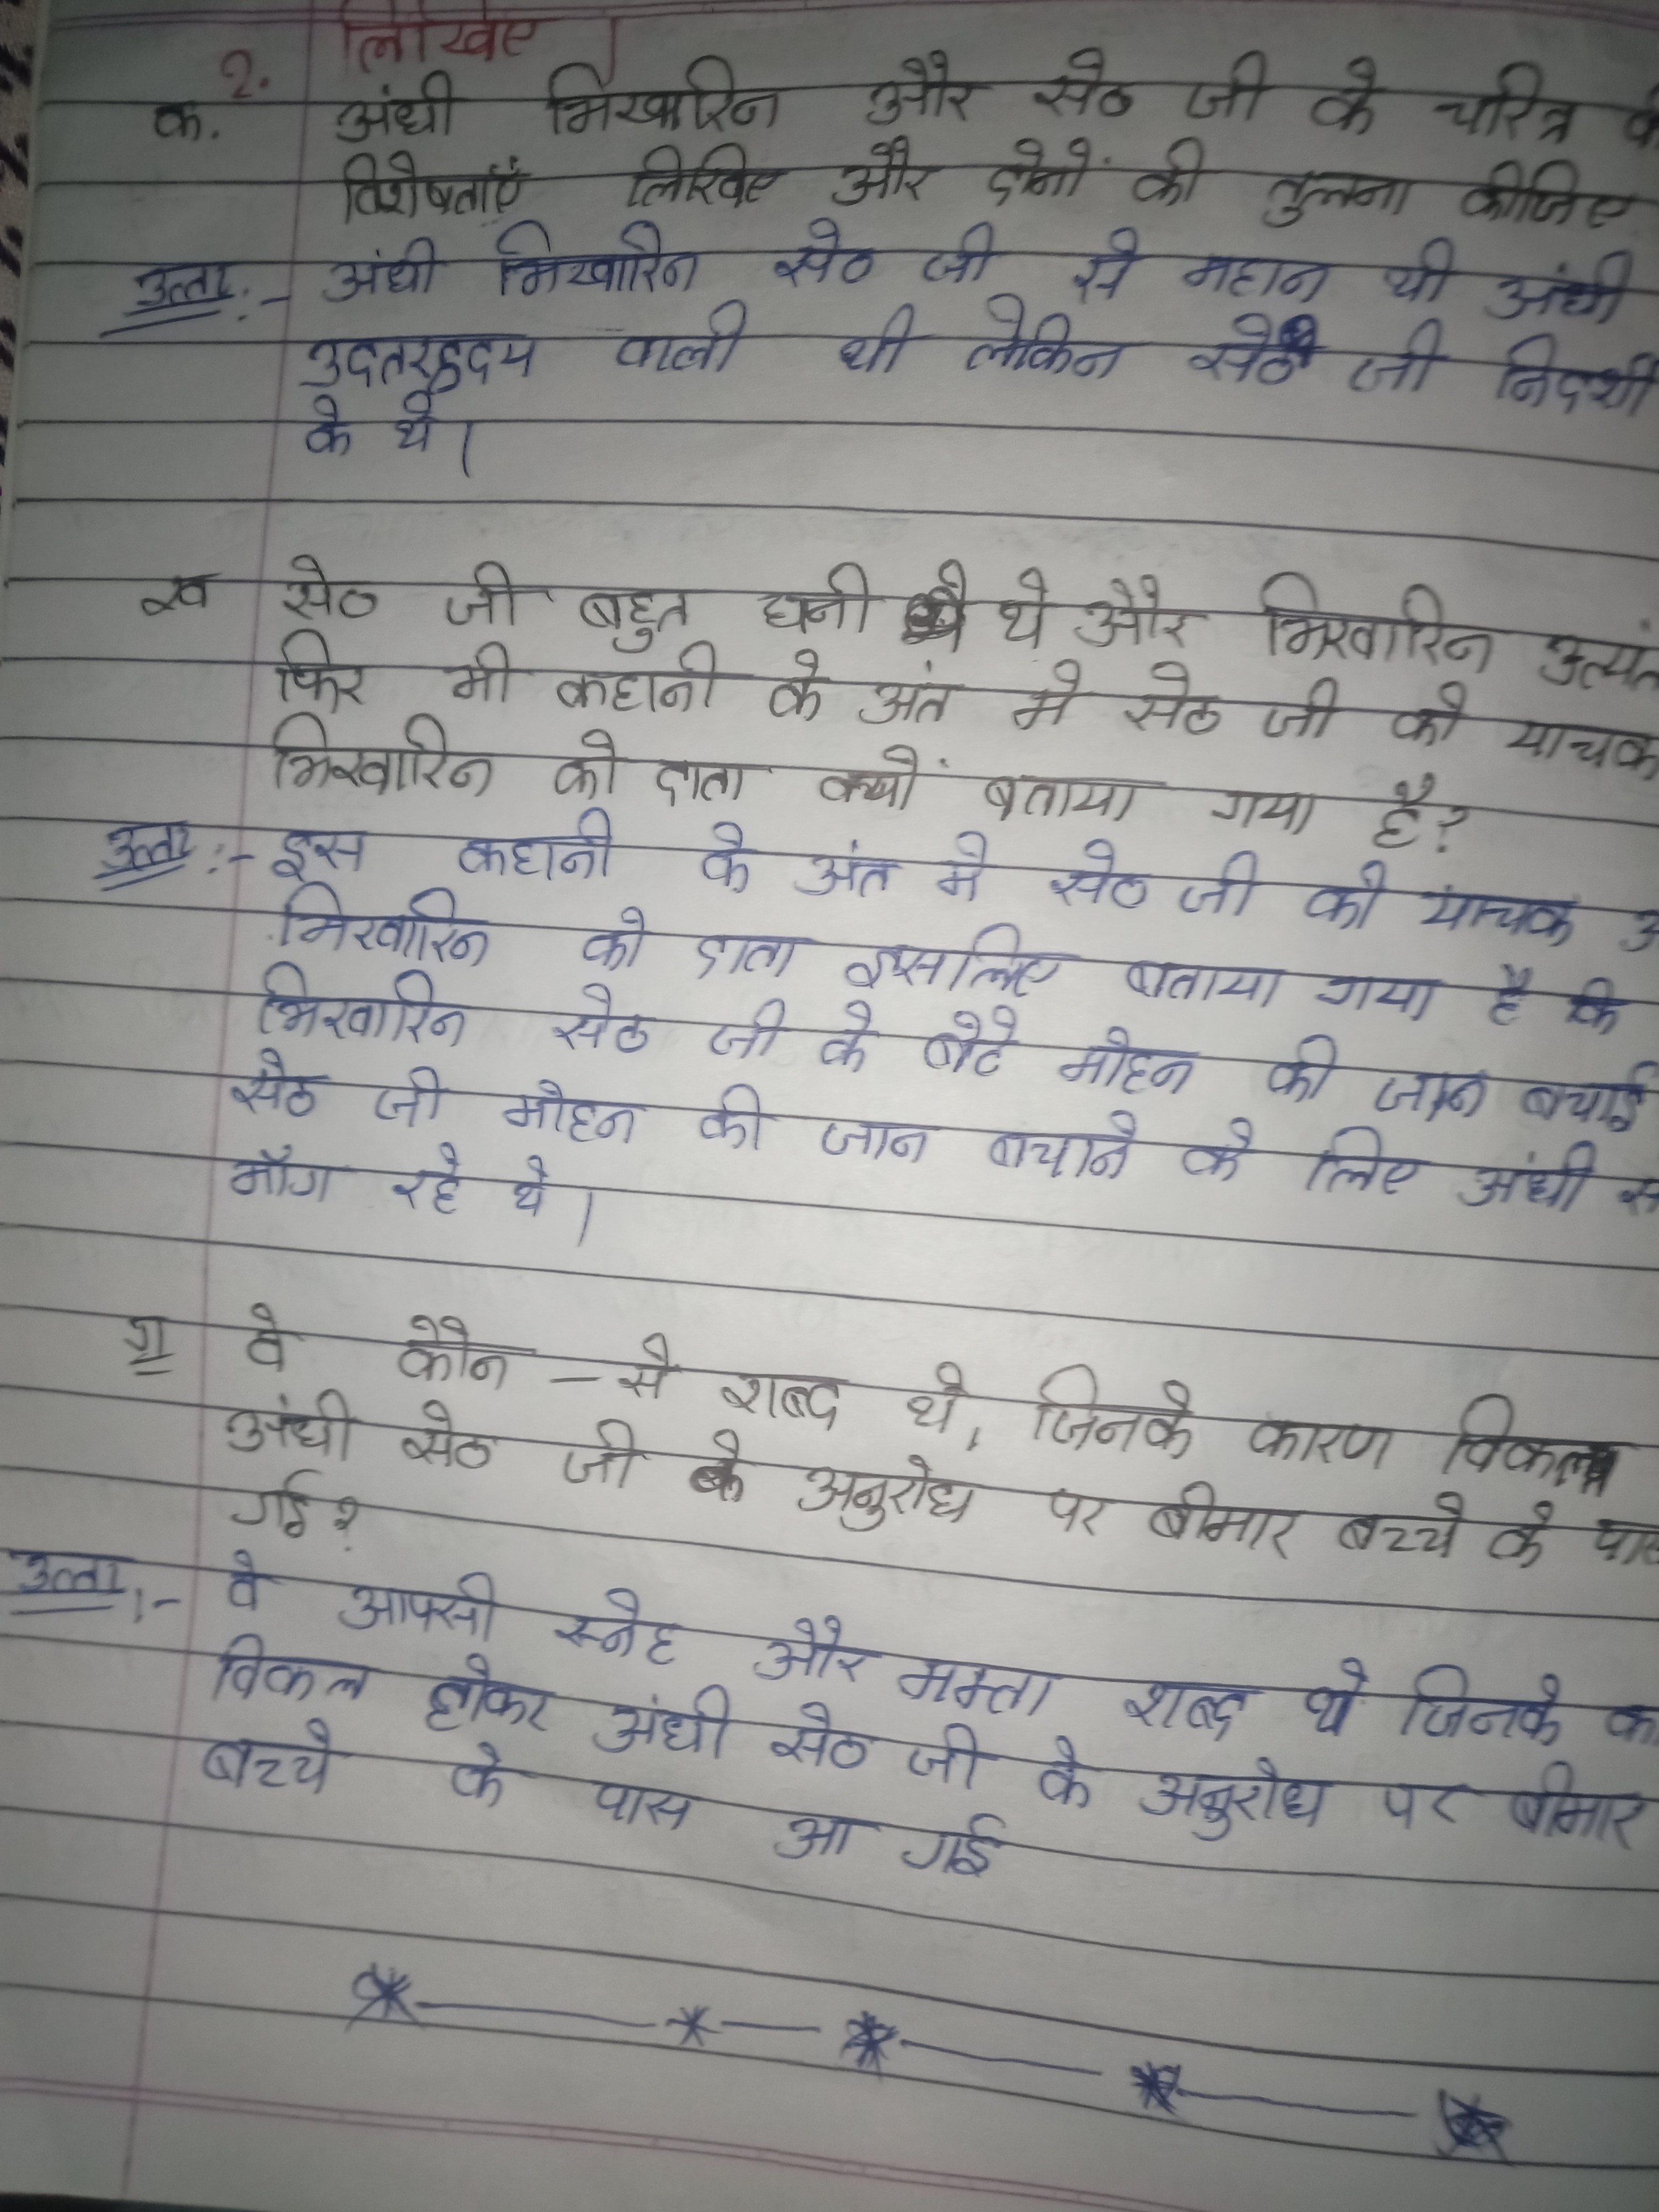 2. लिखिए।
क. अंधी भिखारिन और सेठ जी के चरित्र
विशेषताएँ लिखिए और दोनों की तुलना कीजिए
उत्तर:- अंधी भिखारिन सेठ जी से महान थी अंधी
वाली थी लेकिन सेठ जी निदयी
के थे।
ख सेठ जी बहुत धनी थे और भिखारिन
फिर भी कहानी के अंत मे सेठ जी को याचक
भिखारिन को दाता क्यों बताया गया है?
उत्तर:- इस कहानी के अंत मे सेठ जी को याचक
भिखारिन को दाता इसलिए बताया गया है कि
भिखारिन सेठ जी के बेटे मोहन की जान बचाई
सेठ जी मोहन की जान बचाने के लिए अंधी
माँग रहे थे।
ग वे कौन-से शब्द थे, जिनके कारण विकल
अंधी सेठ जी के अनुरोध पर बीमार बच्चे के
गई?
उत्तर:- वे आपसी स्नेह और मम्ता शब्द थे जिनके
विकल होकर अंधी सेठ जी के अनुरोध पर बीमार
बच्चे के पास आ गई